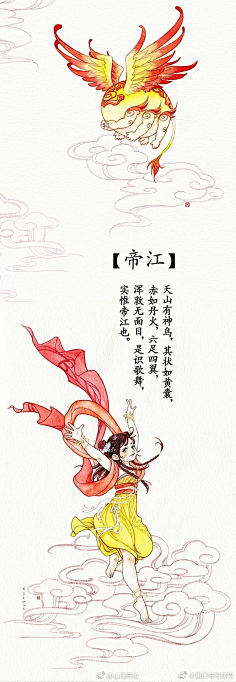 【帝江】
天山有神鸟，其状如黄囊，
赤如丹火，六足四翼，
浑敦无面目，是识歌舞，
实惟帝江也。